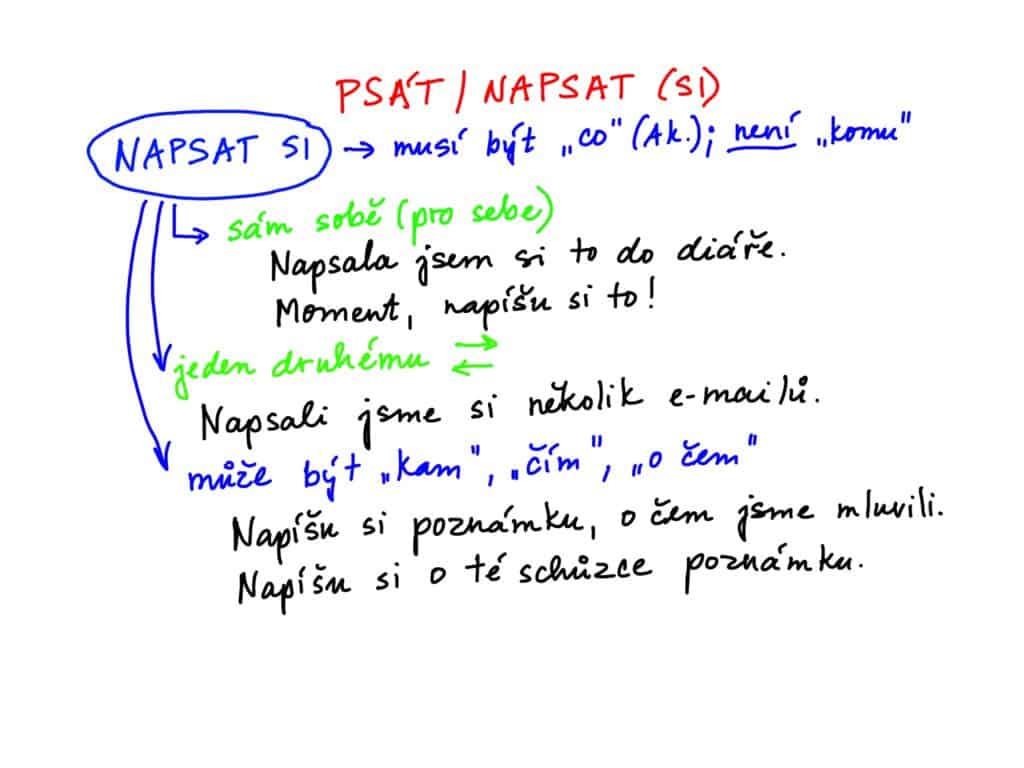 PSÁT / NAPSAT (SI)
NAPSAT SI → musí být „co" (Ak.); není „komu"
sám sobě (pro sebe)
Napsala jsem si to do diáře.
Moment, napíšu si to!
jeden druhému
Napsali jsme si několik e-mailů.
může být „kam", „čím", „o čem"
Napíšu si poznámku, o čem jsme mluvili.
Napíšu si o té schůzce poznámku.